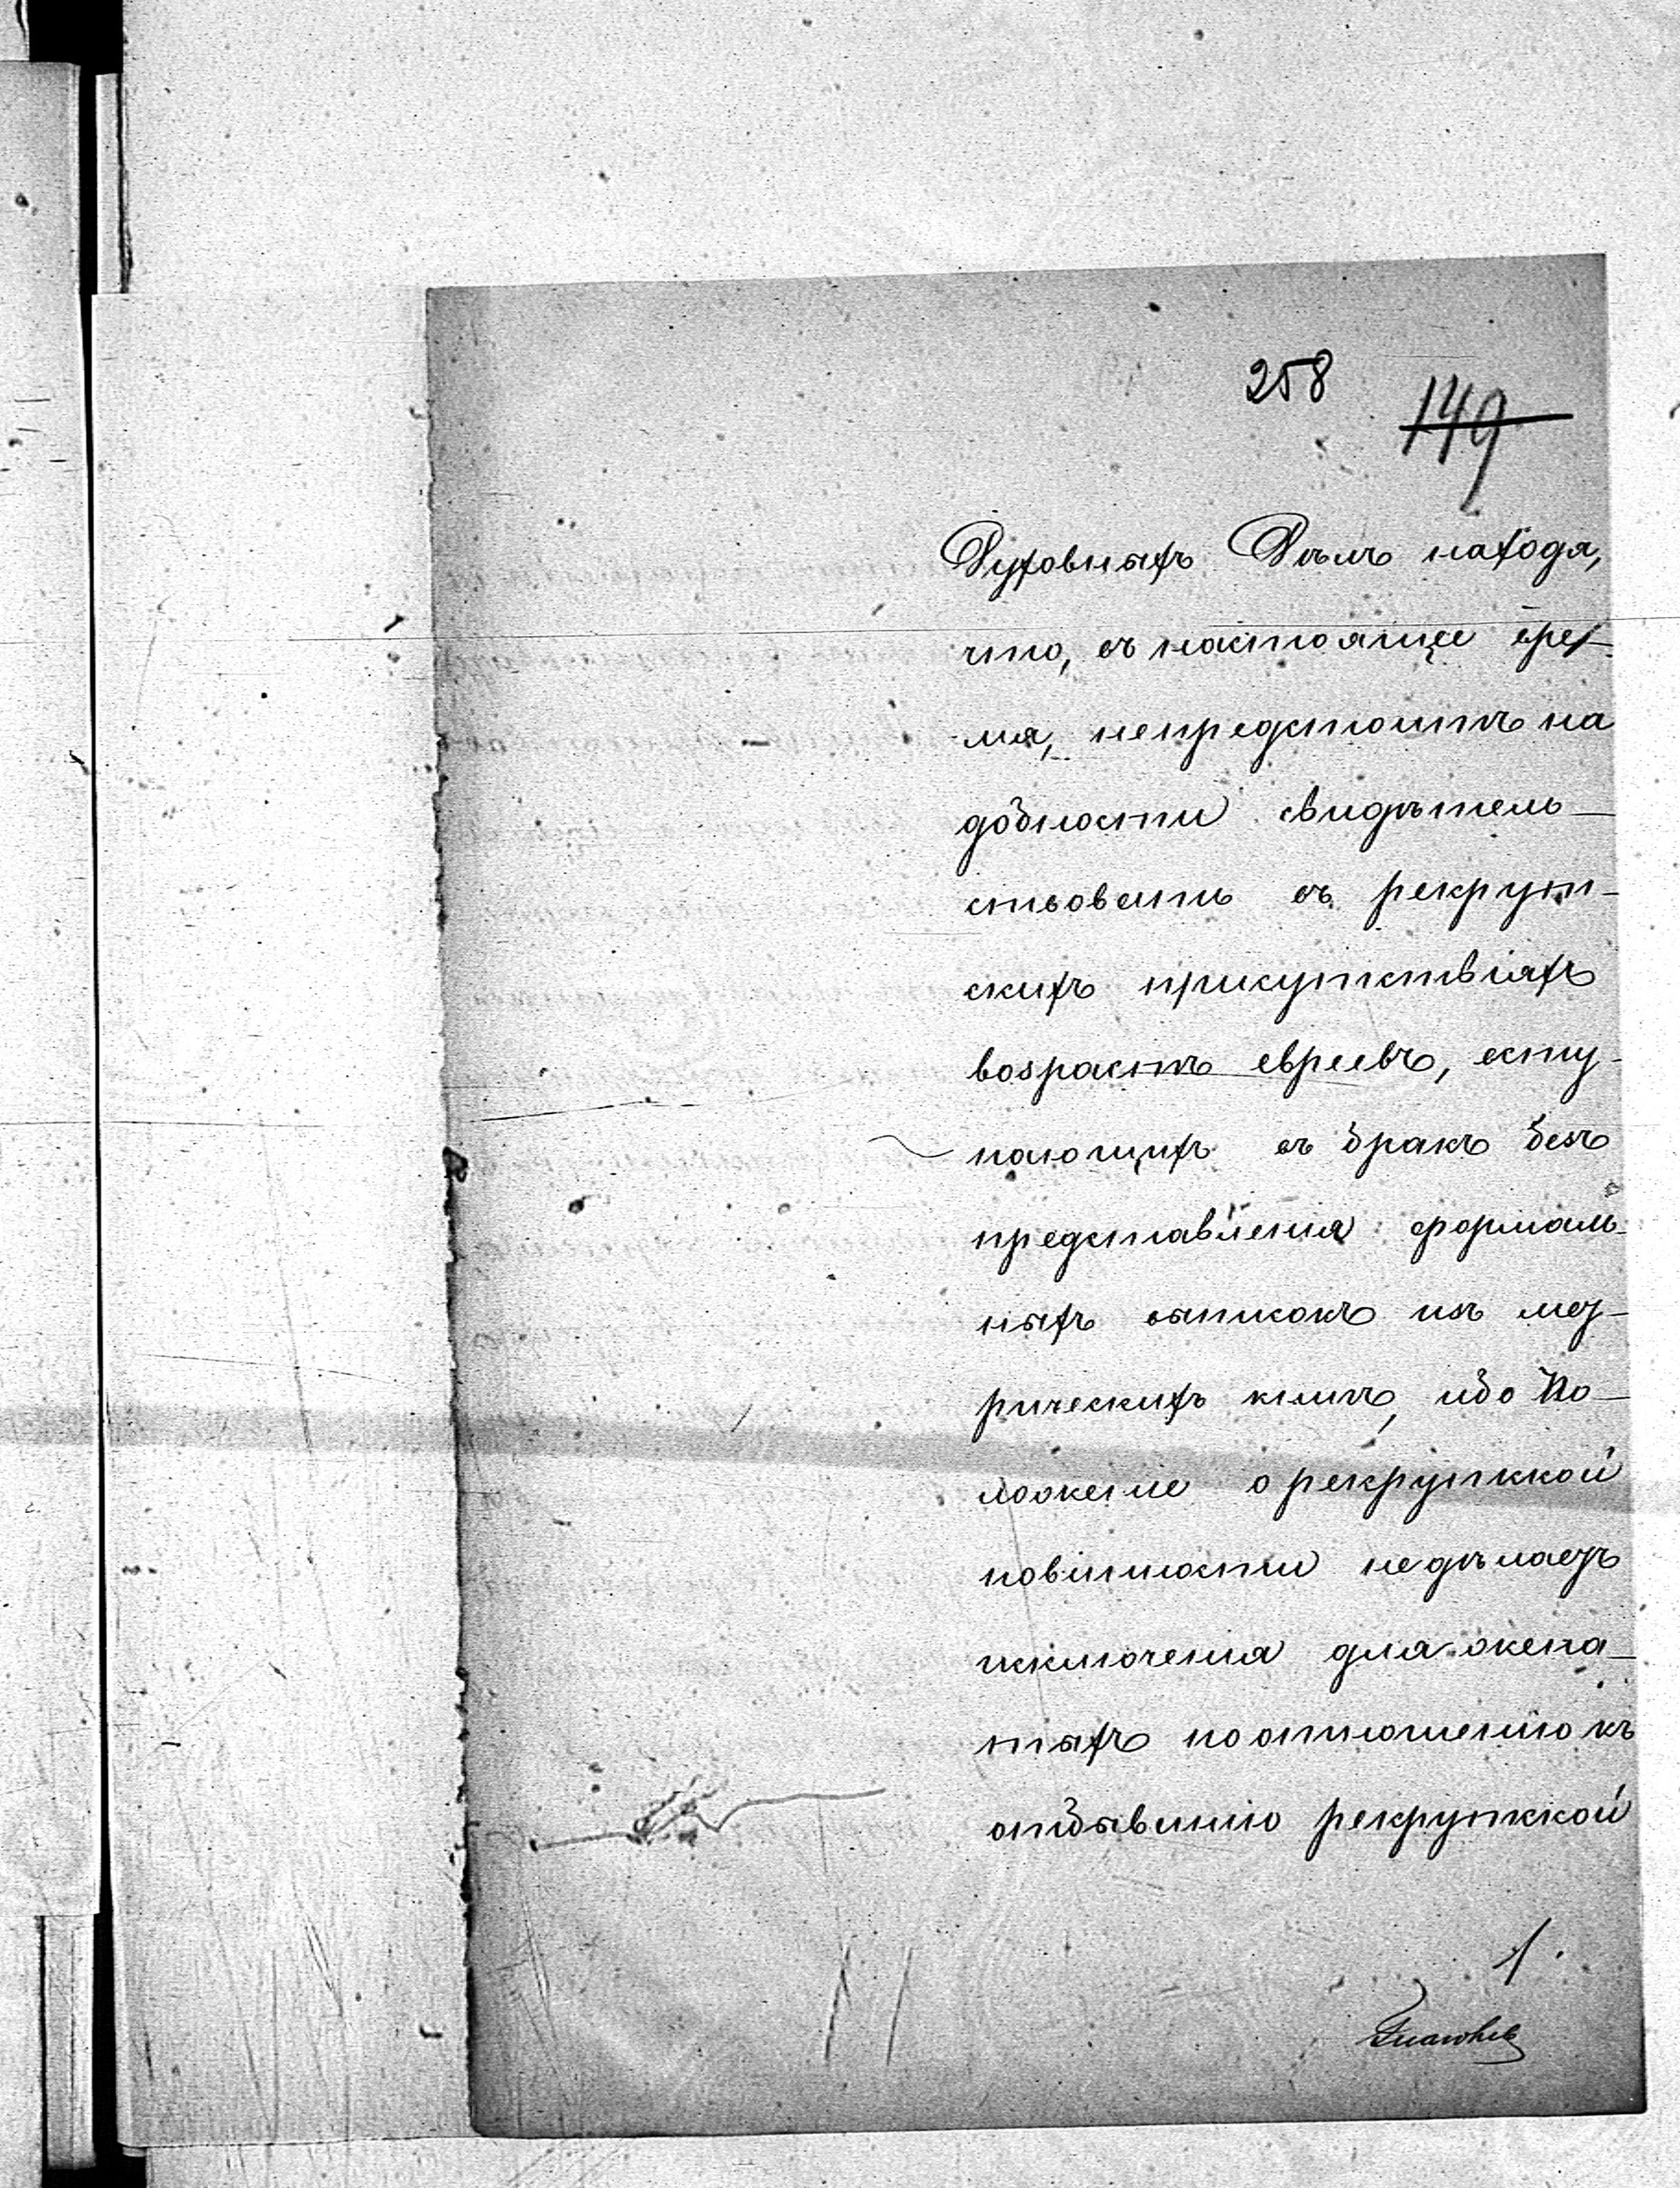 258
149
Духовныхъ Дѣлъ находя,
что, въ настоящее вре-
мя, непредстоитъ на
добности свидѣтель-
ствовать въ рекрут-
скихъ присутствіяхъ
возрастъ евреевъ, всту-
пающихъ въ бракъ безъ
представленія формаль-
ныхъ выписокъ изъ мет-
рическихъ книгъ, ибо По-
ложеніе о рекрутской
повинности недѣлаетъ
исключенія для жена-
тыхъ по отношенію къ
отбыванію рекрутской